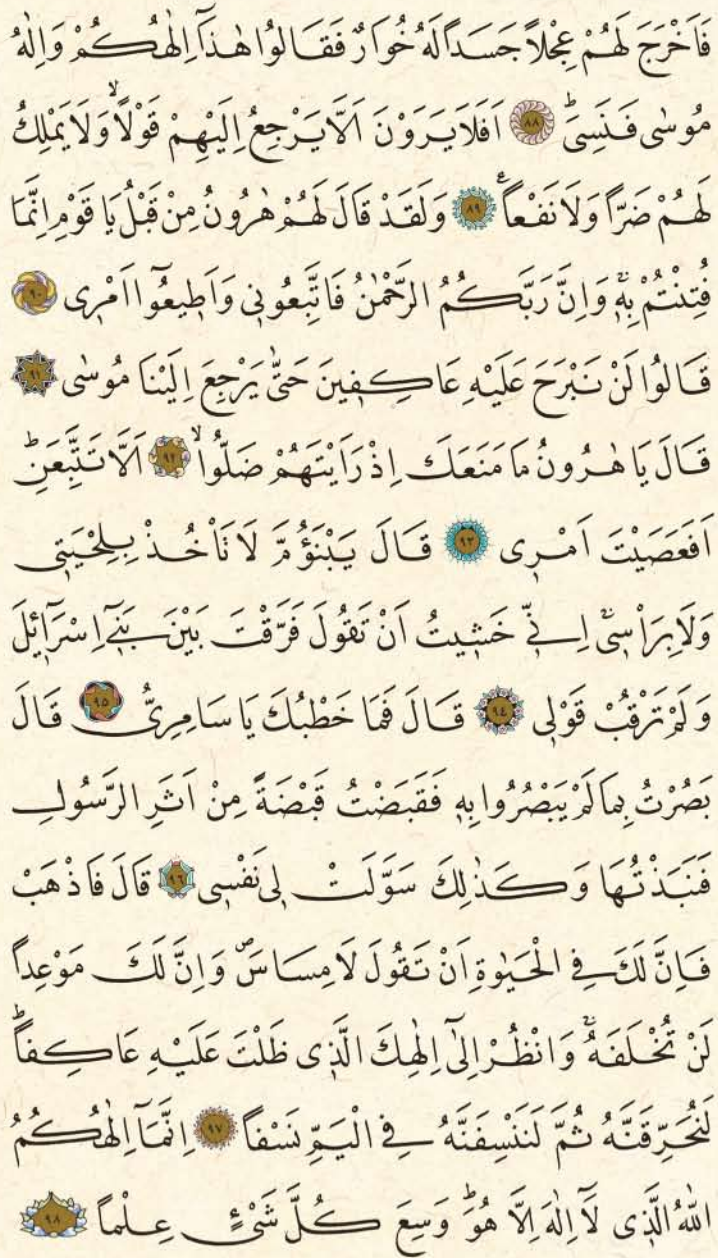 فَاَخْرَجَ لَهُمْ عِجْلاً جَسَداً لَهُ خُوَارٌ فَقَالُوا هٰذَٓا اِلٰهُكُمْ وَاِلٰهُ
مُوسٰى فَنَسِيَۜ ﴿٨٨﴾ اَفَلَا يَرَوْنَ اَلَّا يَرْجِعُ اِلَيْهِمْ قَوْلاًۙ وَلَا يَمْلِكُ
لَهُمْ ضَراًّ وَلَا نَفْعاًࣖ ﴿٨٩﴾ وَلَقَدْ قَالَ لَهُمْ هٰرُونُ مِنْ قَبْلُ يَا قَوْمِ اِنَّمَا
فُتِنْتُمْ بِه۪ۚ وَاِنَّ رَبَّكُمُ الرَّحْمٰنُ فَاتَّبِعُون۪ي وَاَط۪يعُٓوا اَمْر۪ي ﴿٩٠﴾
قَالُوا لَنْ نَبْرَحَ عَلَيْهِ عَاكِف۪ينَ حَتّٰى يَرْجِعَ اِلَيْنَا مُوسٰى ﴿٩١﴾
قَالَ يَا هٰرُونُ مَا مَنَعَكَ اِذْ رَاَيْتَهُمْ ضَلُّواۙ ﴿٩٢﴾ اَلَّا تَتَّبِعَنِۜ
اَفَعَصَيْتَ اَمْر۪ي ﴿٩٣﴾ قَالَ يَبْنَؤُ۬مَّ لَا تَأْخُذْ بِلِحْيَت۪ي
وَلَا بِرَأْس۪يۚ اِنّ۪ي خَش۪يتُ اَنْ تَقُولَ فَرَّقْتَ بَيْنَ بَن۪ٓي اِسْرَٓاء۪يلَ
وَلَمْ تَرْقُبْ قَوْل۪ي ﴿٩٤﴾ قَالَ فَمَا خَطْبُكَ يَا سَامِرِيُّ ﴿٩٥﴾ قَالَ
بَصُرْتُ بِمَا لَمْ يَبْصُرُوا بِه۪ فَقَبَضْتُ قَبْضَةً مِنْ اَثَرِ الرَّسُولِ
فَنَبَذْتُهَا وَكَذٰلِكَ سَوَّلَتْ ل۪ي نَفْس۪ي ﴿٩٦﴾ قَالَ فَاذْهَبْ
فَاِنَّ لَكَ فِي الْحَيٰوةِ اَنْ تَقُولَ لَا مِسَاسَۖ وَاِنَّ لَكَ مَوْعِداً
لَنْ تُخْلَفَهُۚ وَانْظُرْ اِلٰٓى اِلٰهِكَ الَّذ۪ي ظَلْتَ عَلَيْهِ عَاكِفاًۜ
لَنُحَرِّقَنَّهُ ثُمَّ لَنَنْسِفَنَّهُ فِي الْيَمِّ نَسْفاً ﴿٩٧﴾ اِنَّمَٓا اِلٰهُكُمُ
اللّٰهُ الَّذ۪ي لَٓا اِلٰهَ اِلَّا هُوَۜ وَسِعَ كُلَّ شَيْءٍ عِلْماً ﴿٩٨﴾